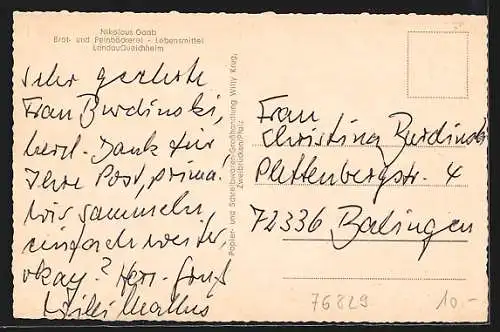 Nikolaus Gaab
Brot- und Feinbäckerei - Lebensmittel
Landau/Queichheim
Sehr geehrte
Frau Burdinski,
herzl. Dank für
Ihre Post, prima!
Wir sammeln
einfach weiter,
okay? Herz. Gruß
Willi
Papier- und Schreibwaren-Großhandlung Willy Krug,
Zweibrücken/Pfalz
Frau
Christina Burdinski
Plettenbergstr. 4
72336 Balingen
76829
10.-